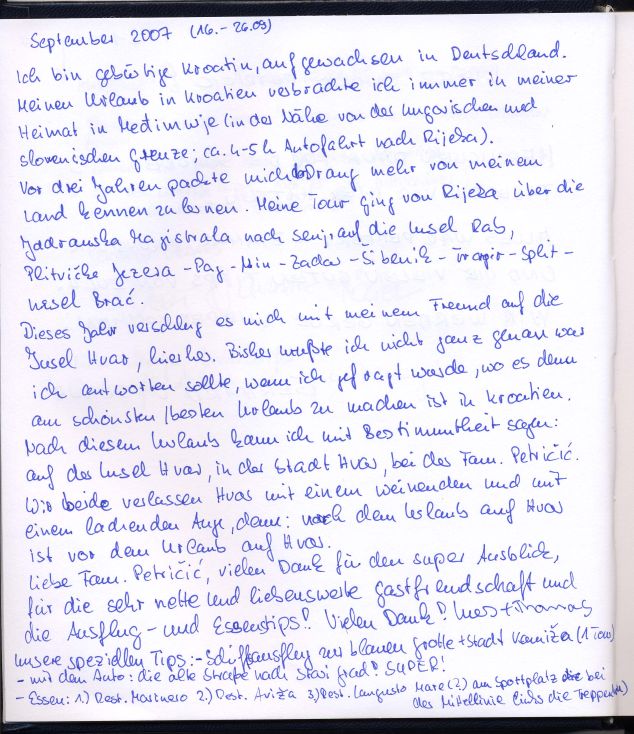 September 2007 (16.-26.09)
Ich bin gebürtige Kroatin, aufgewachsen in Deutschland.
Meinen Urlaub in Kroatien verbrachte ich immer in meiner
Heimat in Međimurje (in der Nähe von der ungarischen und
slovenischen Grenze; ca. 4-5 h Autofahrt nach Rijeka).
Vor drei Jahren packte mich Drang mehr von meinem
Land kennen zu lernen. Meine Tour ging von Rijeka über die
Jadranska Magistrala nach Senj, auf die Insel Rab,
Plitvička Jezera - Pag - Nin - Zadar - Šibenik - Trogir - Split -
Insel Brač.
Dieses Jahr verschlug es mich mit meinem Freund auf die
Insel Hvar, hierher. Bisher wußte ich nicht ganz genau was
ich antworten sollte, wenn ich gefragt wurde, wo es denn
am schönsten/besten Urlaub zu machen ist in Kroatien.
Nach diesem Urlaub kann ich mit Bestimmtheit sagen:
auf der Insel Hvar, in der Stadt Hvar, bei der Fam. Petričić.
Wir beide verlassen Hvar mit einem weinenden und mit
einem lachenden Auge, denn: nach dem Urlaub auf Hvar
ist vor dem Urlaub auf Hvar.
Liebe Fam. Petričić, vielen Dank für den super Ausblick,
für die sehr nette und liebenswerte Gastfreundschaft und
die Ausflug- und Essenstips! Vielen Dank! Ines + Thomas
Unsere speziellen Tips: - Schiffsausflug zur blauen Grotte + Stadt Komiža (1 Tour)
- mit dem Auto: die alte Straße nach Stari Grad! SUPER!
- Essen: 1.) Rest. Marinero 2.) Rest. Aviža 3.) Rest. Lungusto Mare (?) am Sportplatz bei
der Mittellinie links die Treppe